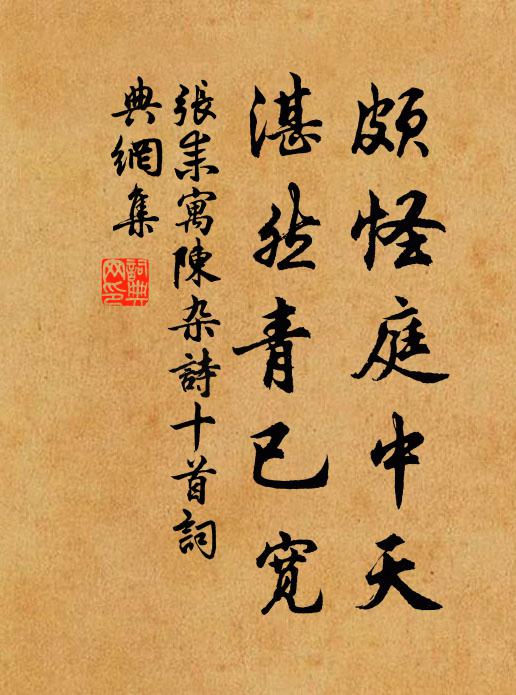 頗怪庭中天
湛然青已寬
張耒寓陳杂詩十首詞
典網集
詞典网印